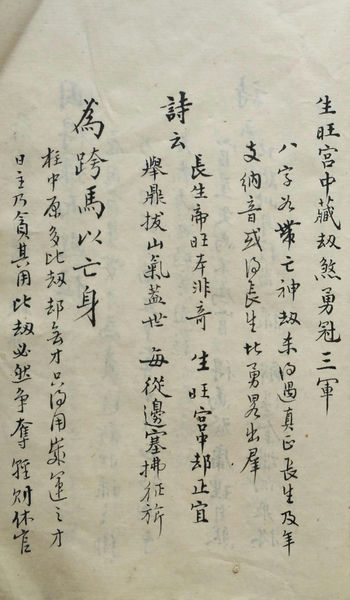 生旺宫中藏劫煞勇冠三軍
八字若帶亡神劫杀得遇真正長生及年
支納音或得長生比勇畧出群
詩云
長生帝旺本非奇 生旺宫中却正宜
舉鼎拔山氣盖世 每從邊塞拂征旂
為跨馬以亡身
柱中原多比劫却無才只得用歲運之才
日主乃貪其用比劫必然争奪輕則休官